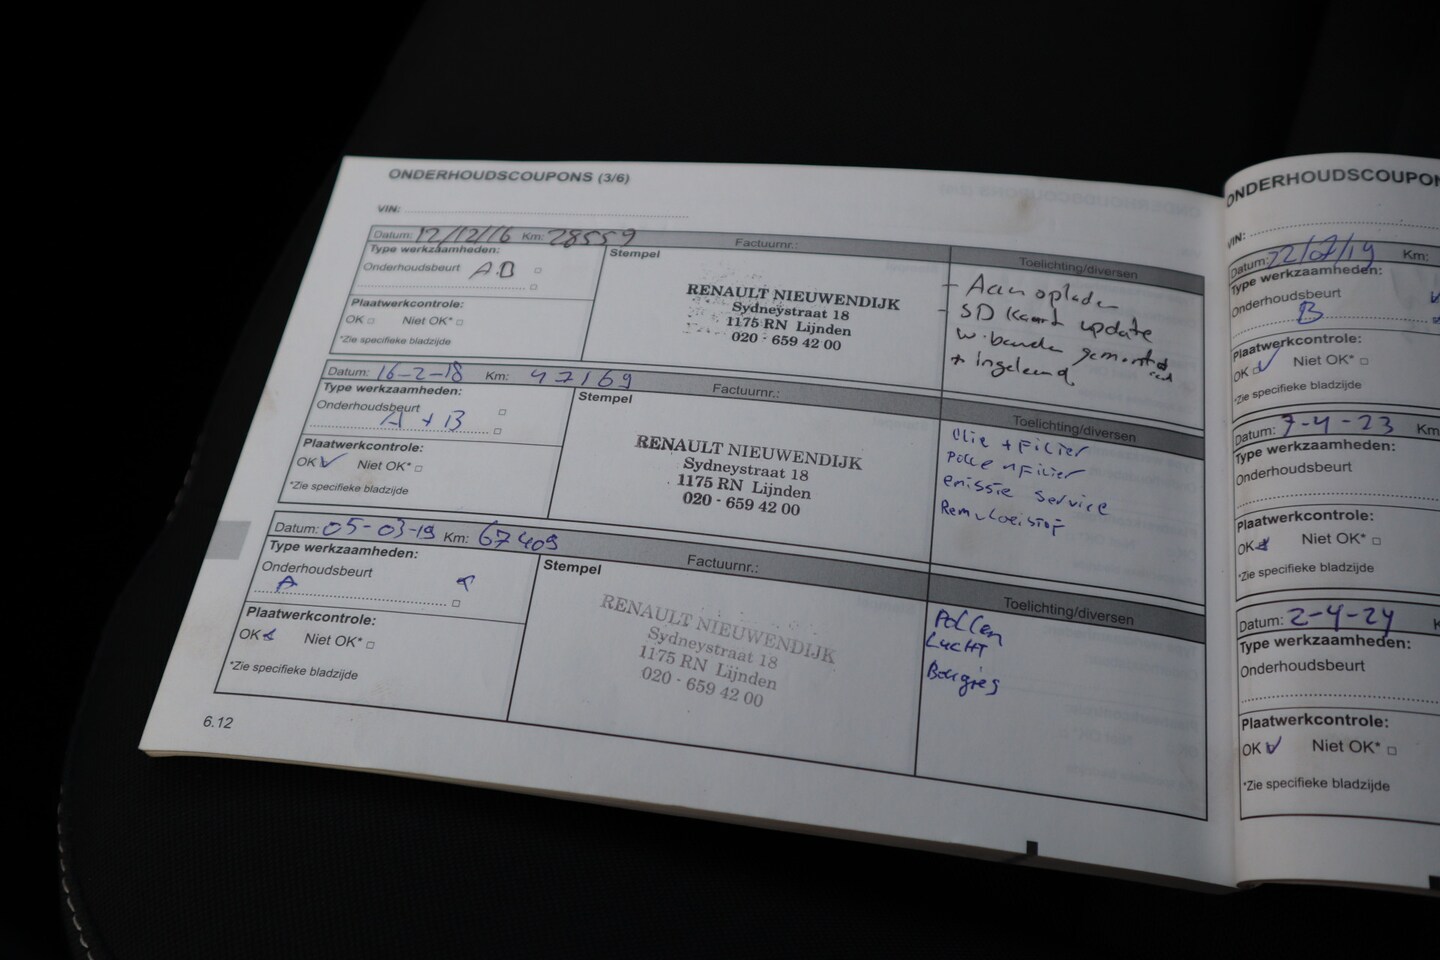 ONDERHOUDSCOUPONS (3/6)
VIN:
Datum: 12/12/16 Km: 28559 Factuurnr.:
Type werkzaamheden: Stempel Toelichting/diversen
Onderhoudsbeurt A.B
Plaatwerkcontrole:
OK Niet OK*
*Zie specifieke bladzijde
RENAULT NIEUWENDIJK
Sydneystraat 18
1175 RN Lijnden
020 - 659 42 00
- Aan opladen
- SD Kaart update
w.banden gemonteerd
+ ingeleend
Datum: 16-2-18 Km: 47169 Factuurnr.:
Type werkzaamheden: Stempel Toelichting/diversen
Onderhoudsbeurt
A + B
Plaatwerkcontrole:
OK Niet OK*
*Zie specifieke bladzijde
RENAULT NIEUWENDIJK
Sydneystraat 18
1175 RN Lijnden
020 - 659 42 00
olie + filter
pollenfilter
emissie service
Remvloeistof
Datum: 05-03-19 Km: 67409 Factuurnr.:
Type werkzaamheden: Stempel Toelichting/diversen
Onderhoudsbeurt
A
Plaatwerkcontrole:
OK Niet OK*
*Zie specifieke bladzijde
RENAULT NIEUWENDIJK
Sydneystraat 18
1175 RN Lijnden
020 - 659 42 00
Pollen
Lucht
6.12
ONDERHOUDSCOUPON
VIN:
Datum: 22/07/19 Km:
Type werkzaamheden:
Onderhoudsbeurt
B
Plaatwerkcontrole:
OK Niet OK*
*Zie specifieke bladzijde
Datum: 7-4-23 Km
Type werkzaamheden:
Onderhoudsbeurt
Plaatwerkcontrole:
OK Niet OK*
*Zie specifieke bladzijde
Datum: 2-4-24
Type werkzaamheden:
Onderhoudsbeurt
Plaatwerkcontrole:
OK Niet OK*
*Zie specifieke bladzijde